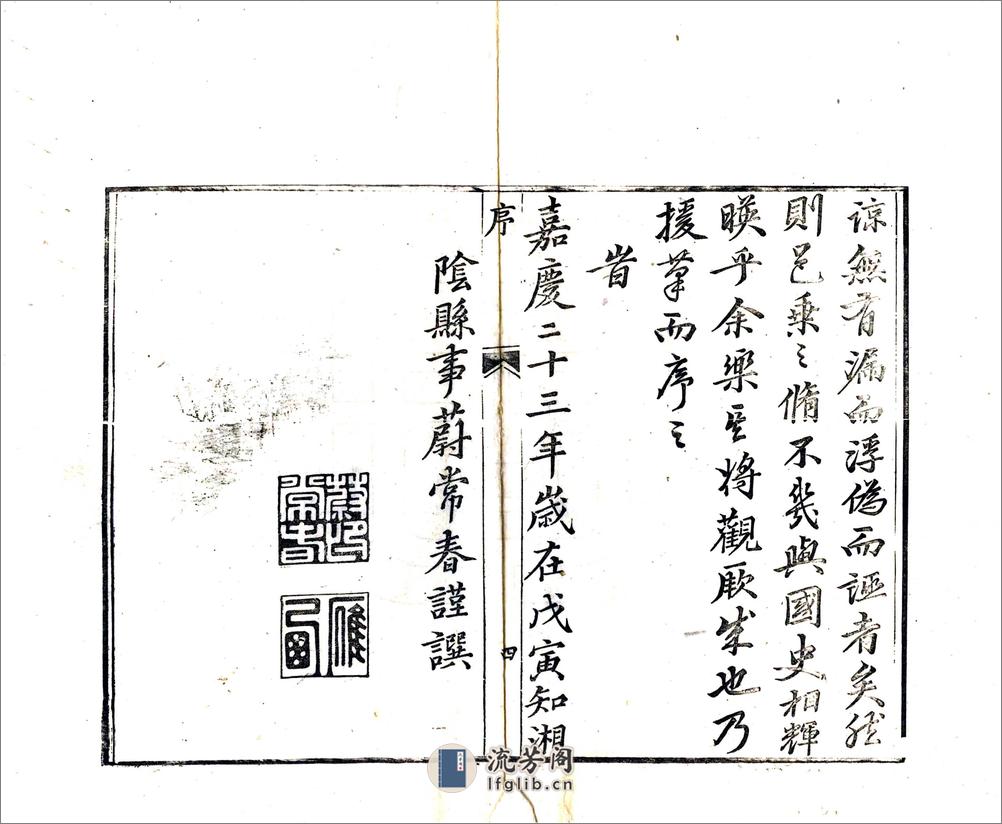 諒無有漏而浮偽而誣者矣然
則邑乘之脩不幾與國史相輝
暎乎余樂其將觀厥成也乃
援筆而序之
峕
嘉慶二十三年歲在戊寅知湘
序
四
陰縣事蔚常春謹譔
蔚常春印
流芳阁
lfglib.cn